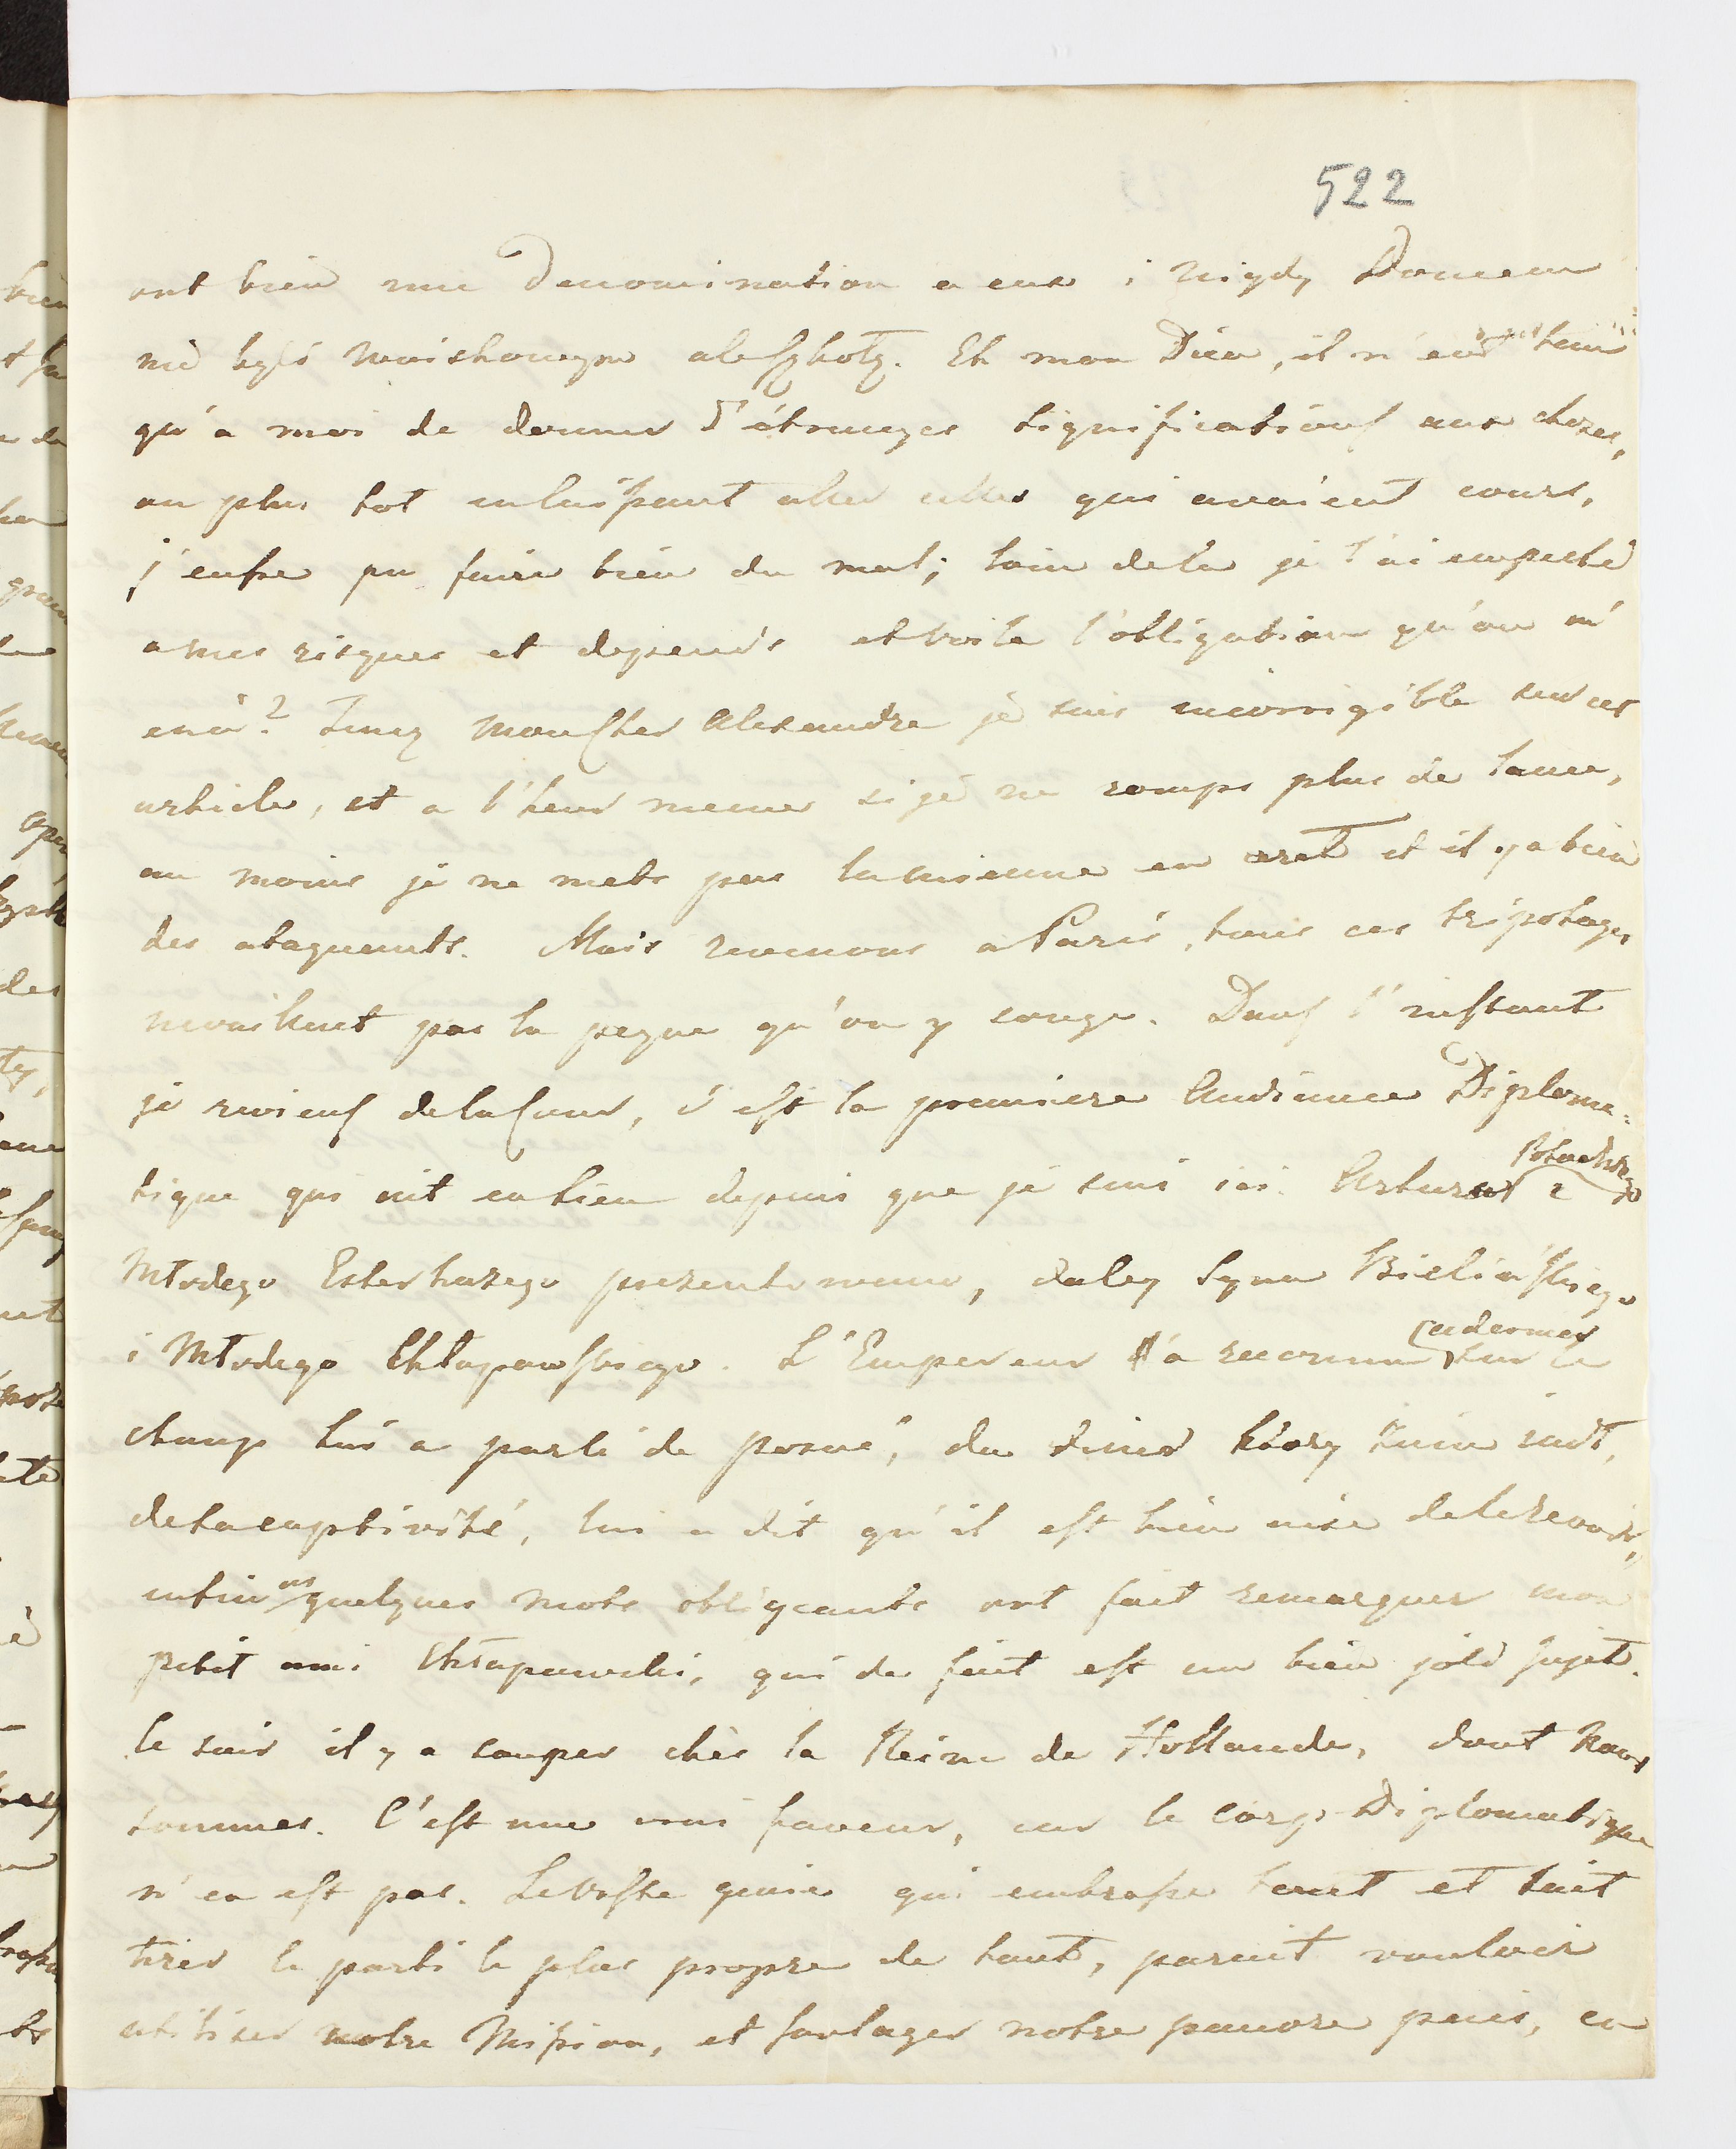 522
ont bien une Denomination a eux i nigdy Domem
nie byli
Eh mon Dieu, il n'eut tenu
qu'a moi de donner d'étranges significations aux choses,
ou plus tot en laissant aller celles qui avaient cours,
j'eusse pu faire bien du mal; loin dela je l'ai empeché
a mes risques et depends et voila l'obligation qu'on m'
en a? Tenez mon cher Alexandre je suis incorrigible sur cet
article, et a l'heur meme si je ne romps plus de lance,
au moins je ne mets pas la mienne en aret et il y a bien
des ataquents. Mais revenons a Paris, tous ces tripotages
nevaillent pas la peyne qu'on y songe. Dans l'instant
je reviens dela Cour, c'est la premiere Audience Diploma=
tique qui ait eu lieu depuis que je suis ici. Artura Potockiego i
Młodego Esterhazego prezentowano, daley Syna Bielińskiego
i Młodego Chłapowskiego. L'Empereur l'a reconnu ce dernier sur le
champ lui a parlé de Posné, du
detacaptivité, lui a dit qu'il est bien aise delerevoir,
enfin ces quelques mots obligeants ont fait remarquer mon
petit ami Chłapowski, qui de fait est un bien joli sujet.
le soir il y a souper chés la Reine de Hollande, dont nous
sommes. C'est une vrai faveur, car le Corps Diplomatique
n'en est pas. Levaste genie qui embrasse tout et sait
tirer le parti le plus propre de tout, parait vouloir
utiliser notre Mission, et soulager notre pauvre païs, en